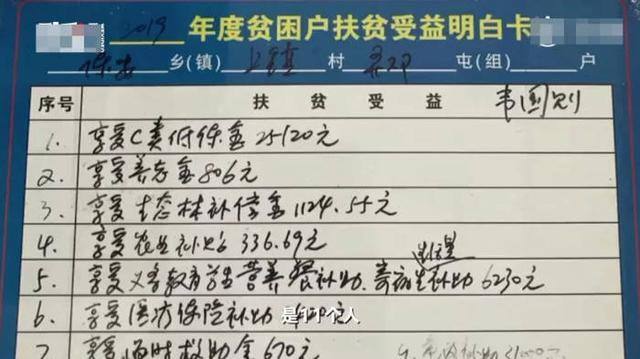 2019 年度贫困户扶贫受益明白卡
保安 乡(镇) 上镇 村 屯(组) 户
序号 扶贫受益 韦国则
1. 享受C类低保金25120元
2. 享受养老金806元
3. 享受生态林补偿金1124.55元
4. 享受农业补贴336.69元
5. 享受义务教育学生营养餐补助、寄宿生补助6230元
6. 享受医疗保险补助 元
是17个人
7 享受临时救助金670元